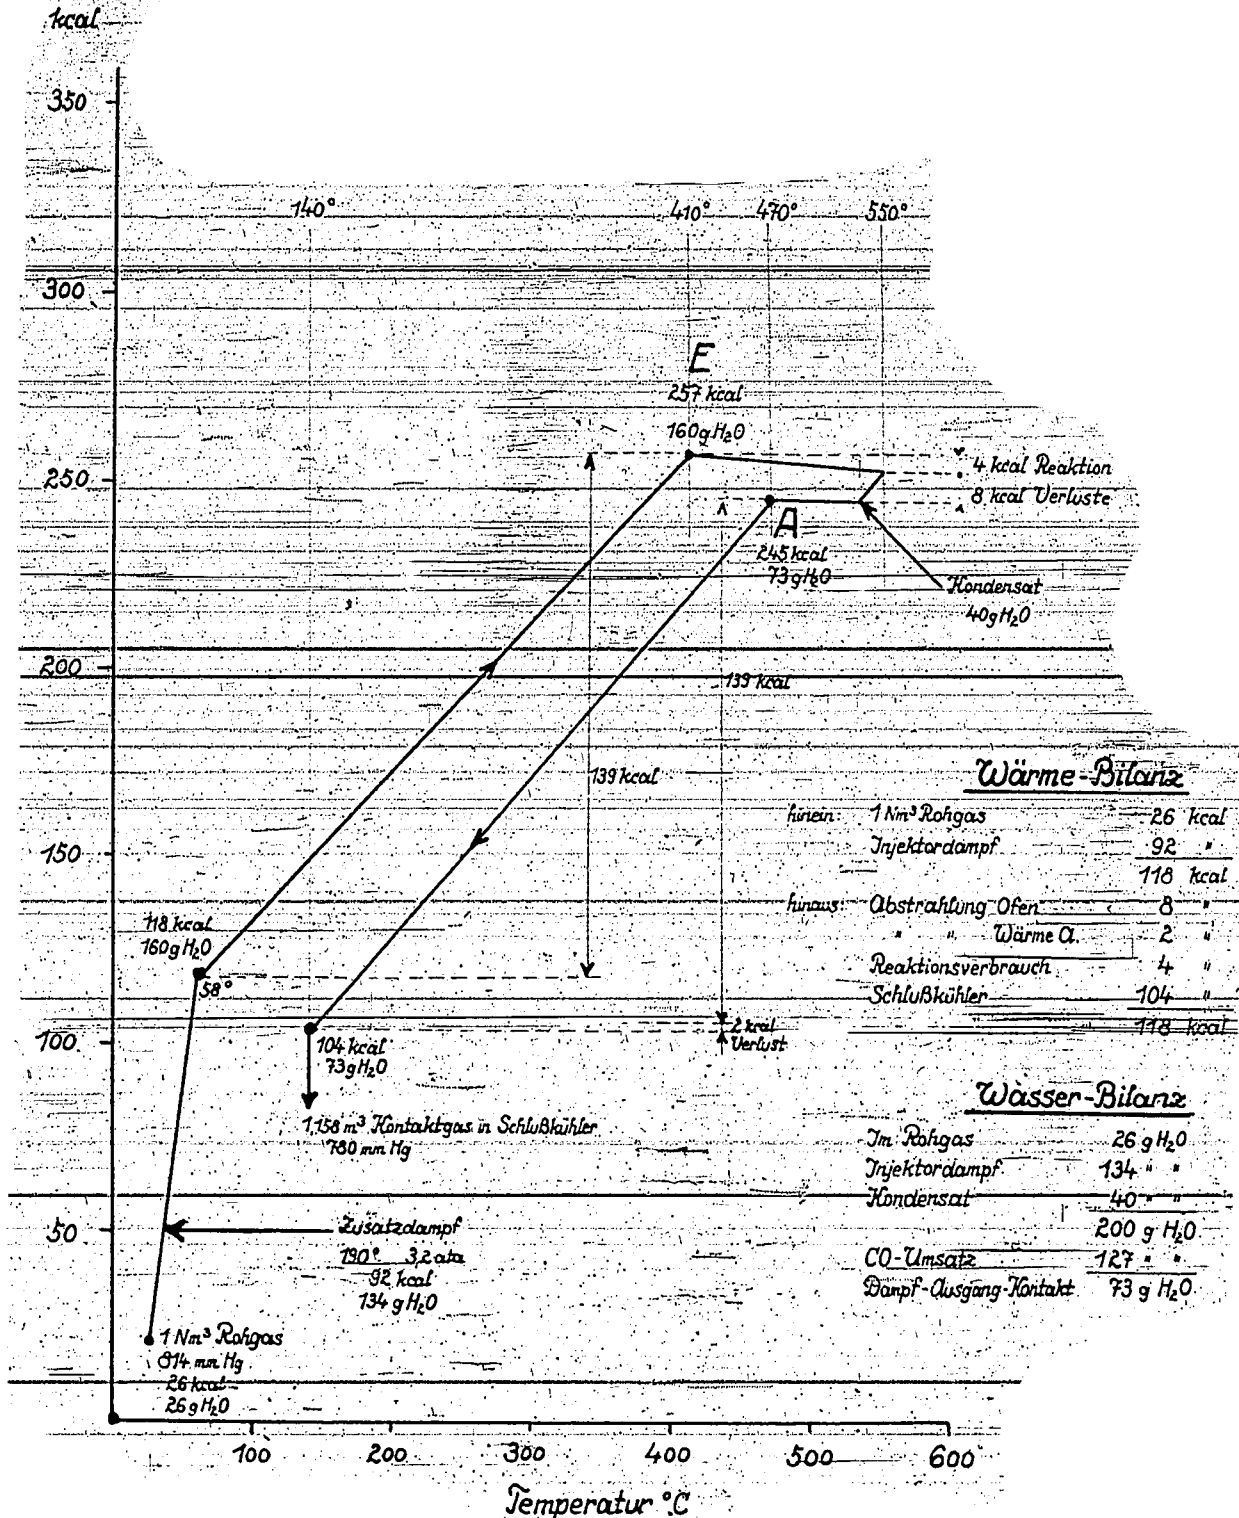 kcal
350
300
250
200
150
100
50
140°
410°
470°
550°
E
257 kcal
160 g H₂O
4 kcal Reaktion
8 kcal Verluste
A
245 kcal
73 g H₂O
Kondensat
40 g H₂O
139 kcal
139 kcal
118 kcal
160 g H₂O
58°
104 kcal
73 g H₂O
2 kcal
Verlust
1,158 m³ Kontaktgas in Schlußkühler
780 mm Hg
Zusatzdampf
190° 3,2 ata
92 kcal
134 g H₂O
1 Nm³ Rohgas
814 mm Hg
26 kcal
26 g H₂O
100 200 300 400 500 600
Temperatur °C
Wärme-Bilanz
hinein: 1 Nm³ Rohgas 26 kcal
Injektordampf 92 "
118 kcal
hinaus: Abstrahlung Ofen 8 "
" " Wärme A. 2 "
Reaktionsverbrauch 4 "
Schlußkühler 104 "
118 kcal
Wasser-Bilanz
Im Rohgas 26 g H₂O
Injektordampf 134 " "
Kondensat 40 " "
200 g H₂O
CO-Umsatz 127 " "
Dampf-Ausgang-Kontakt 73 g H₂O